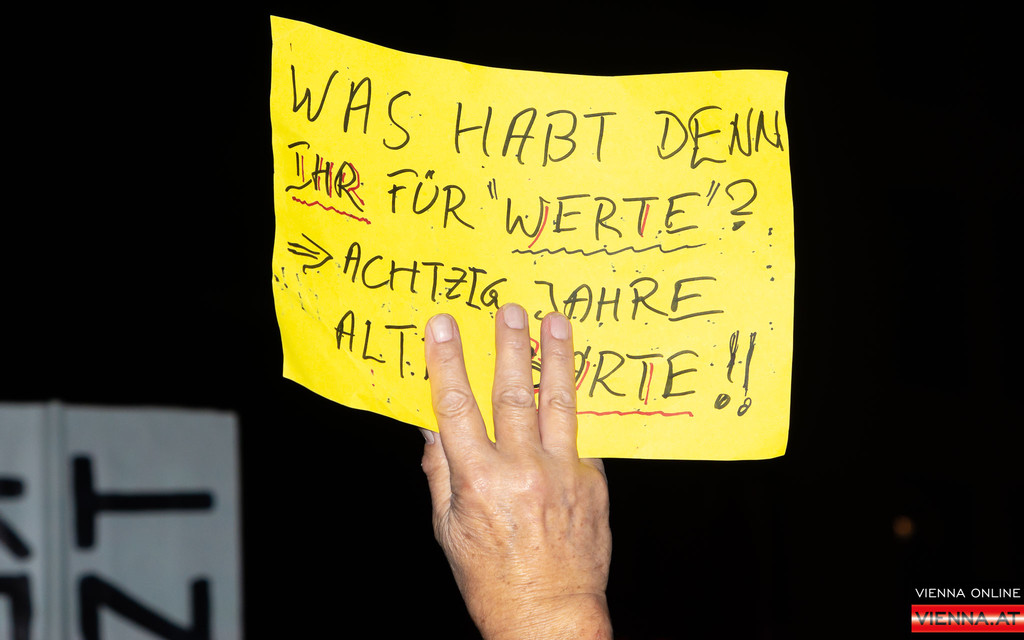 WAS HABT DENN
IHR FÜR "WERTE"?
⇒ ACHTZIG JAHRE
ALT BÄRTE!!
ZT
VIENNA ONLINE
VIENNA.AT